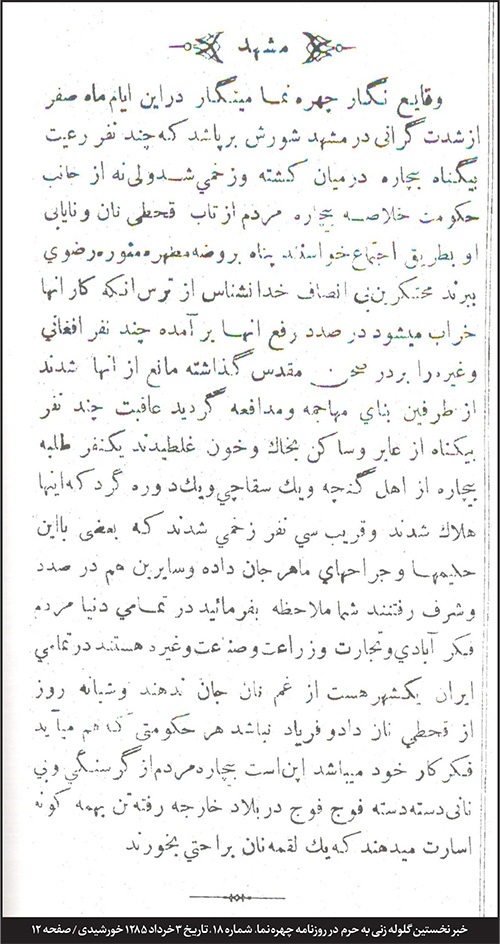 مشهد
وقایع نگار چهره نما مینگارد در این ایام ماه صفر
از شدت گرانی در مشهد شورش برپا شد که چند نفر رعیت
بیگناه بیچاره در میان کشته وزخمی شدولی نه از جانب
حکومت خلاصه بیچاره مردم از تاب قحطی نان و نایابی
او بطریق اجتماع خواستند پناه بروضه مطهره منوره رضوی
ببرند محتکرین بی انصاف خدانشناس از ترس انکه کار انها
خراب میشود در صدد رفع انها بر آمده چند نفر افغانی
وغیره را بر در صحن مقدس گذاشته مانع از انها شدند
از طرفین بنای مهاجمه ومدافعه گردید عاقبت چند نفر
بیکناه از عابر وساکن بخاك وخون غلطیدند یکنفر طلبه
بیچاره از اهل گنجه ویك سقاچی ویك دوره گرد که اینها
هلاك شدند وقریب سی نفر زخمی شدند که بعضی بااین
حکیمها و جراحهای ماهر جان داده وسایرین هم در صدد
وشرف رفتنند شما ملاحظه بفرمائید در تمامی دنیا مردم
فکر آبادی وتجارت وزراعت وصناعت وغیره هستند در تمامی
ایران یکشهر هست از غم نان جان ندهند وشبانه روز
از قحطی نان دادو فریاد نباشد هر حکومتی که هم میآید
فکر کار خود میباشد این است بیچاره مردم از گرسنگی وبی
نانی دسته دسته فوج فوج در بلاد خارجه رفته تن بهمه کونه
اسارت میدهند که یك لقمه نان براحتی بخورند
خبر نخستین گلوله زنی به حرم در روزنامه چهره‌نما. شماره ۱۸. تاریخ ۳ خرداد ۱۲۸۵ خورشیدی / صفحه ۱۲